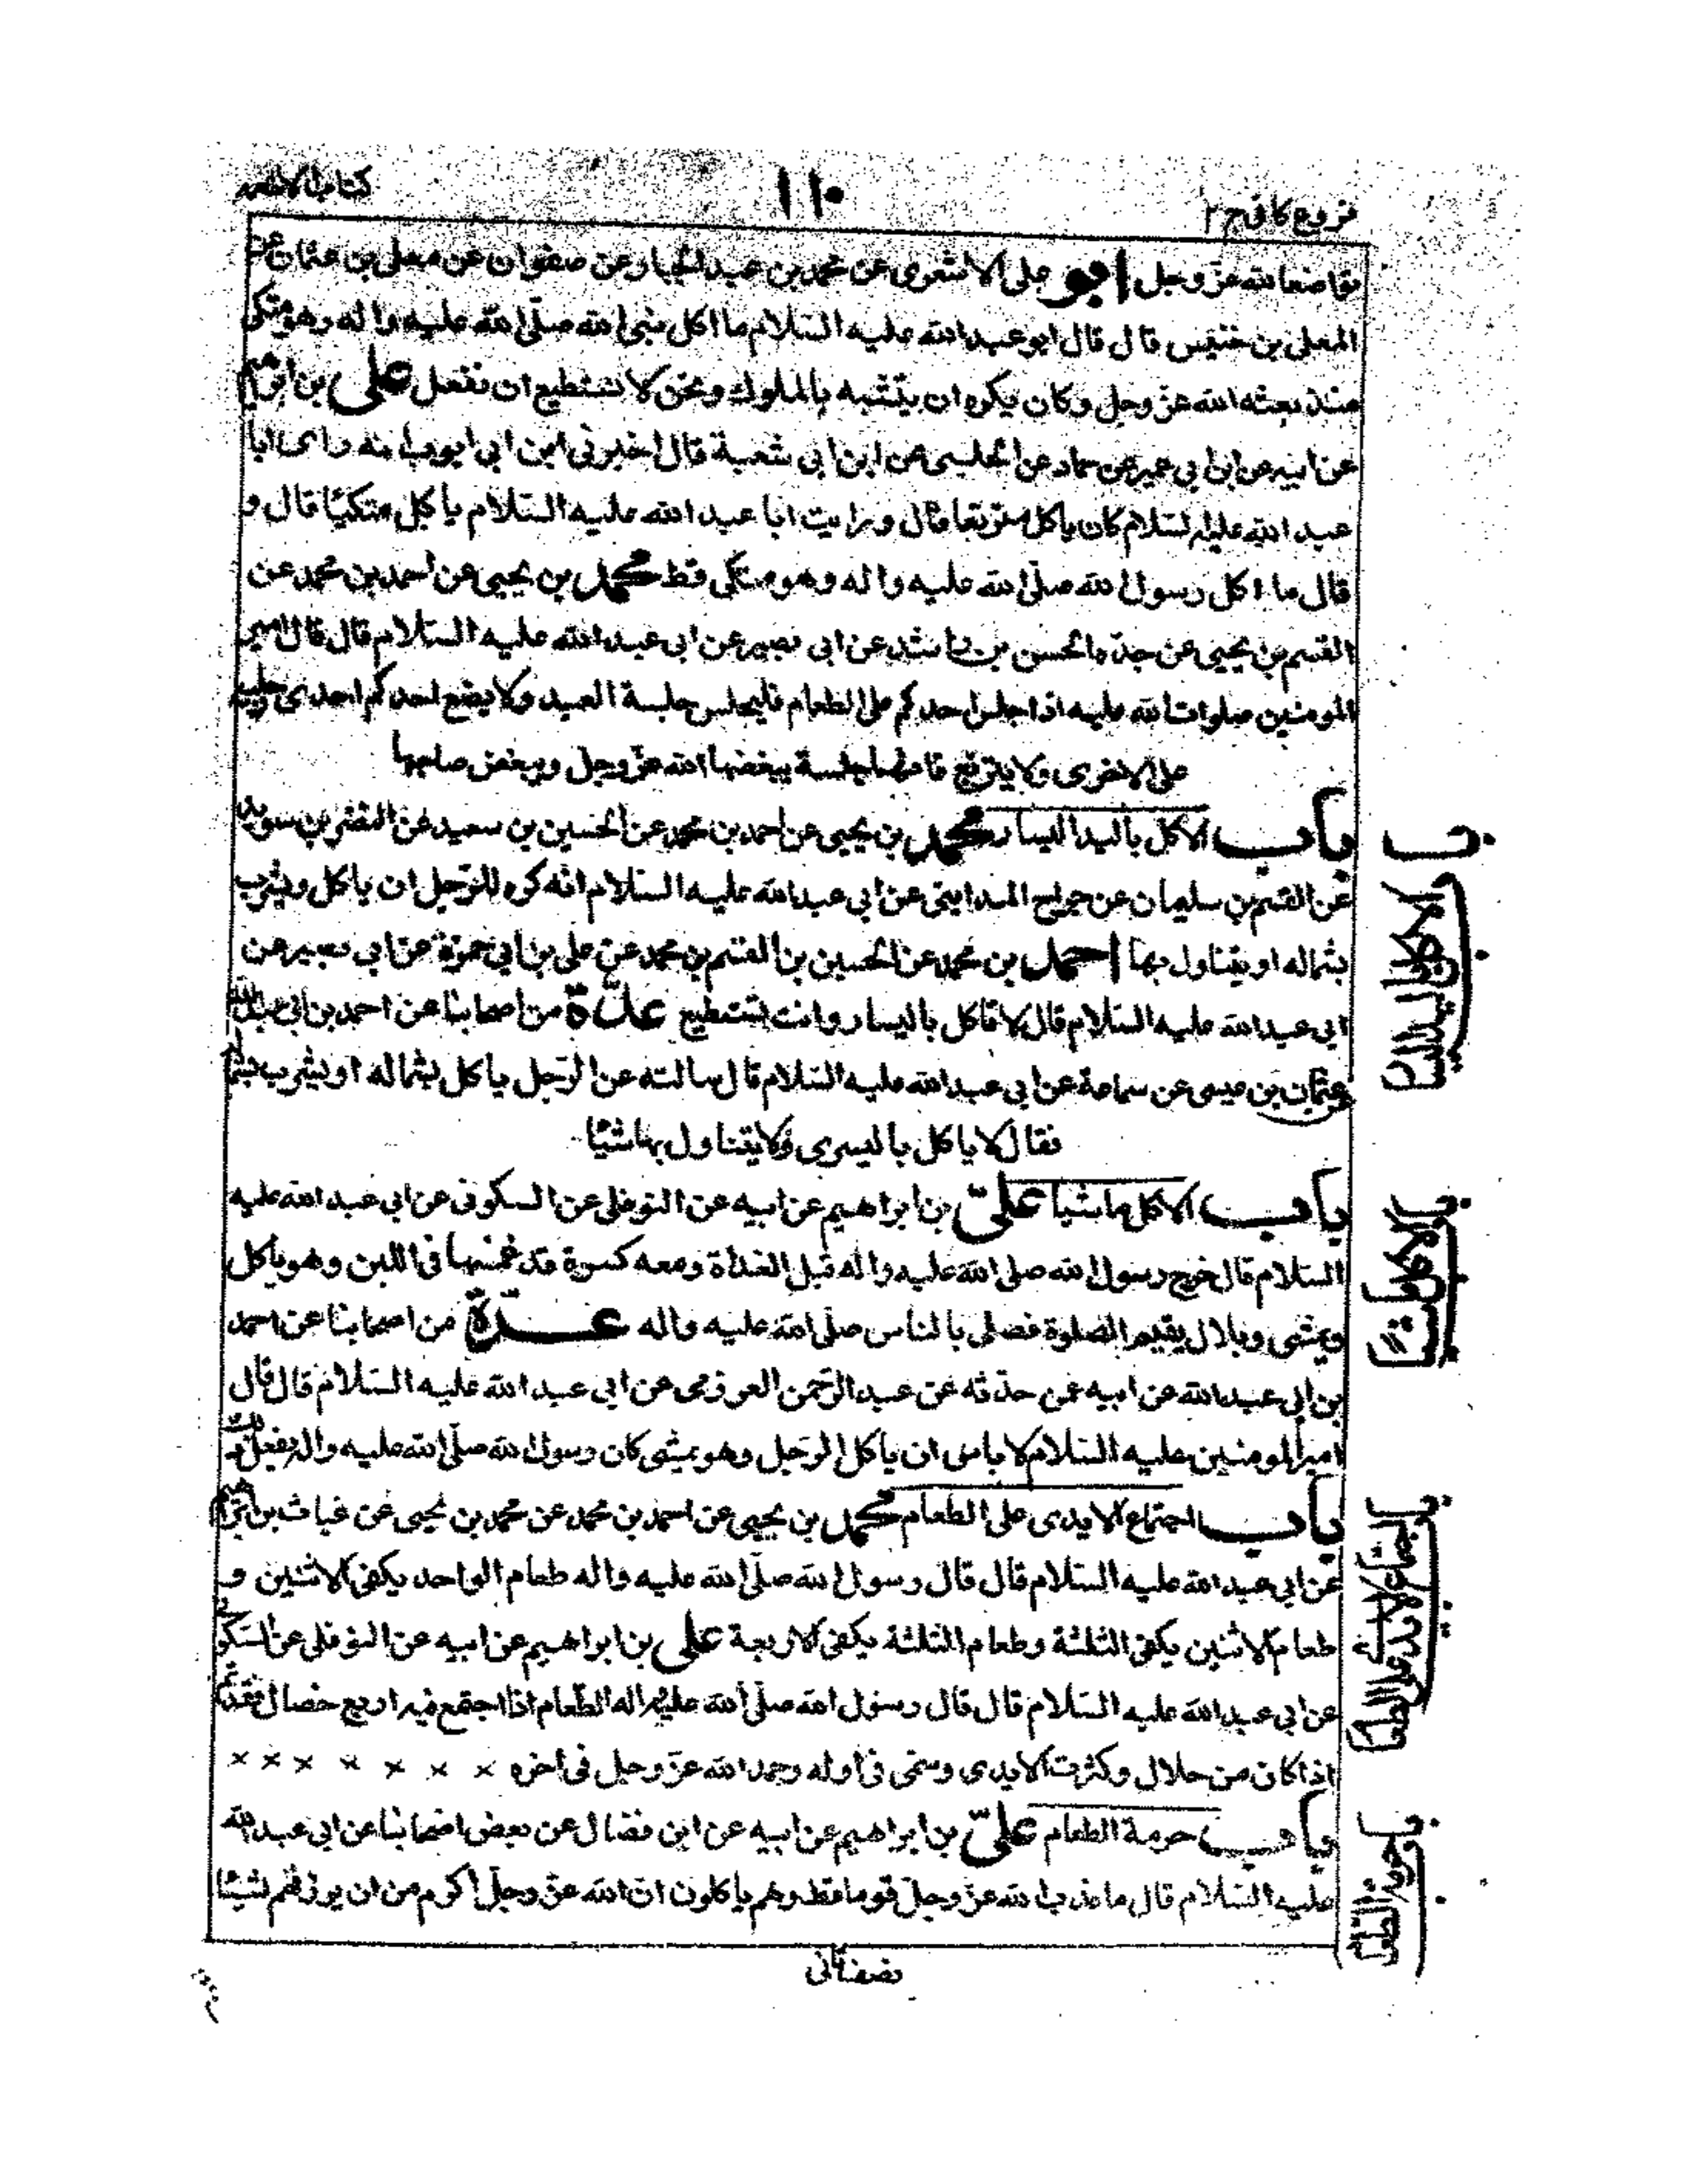 فروع كافى ج ٢
١١٠
كتاب الاطعمه
تواضعا لله عز وجل ابو على الاشعرى عن محمد بن عبد الجبار عن صفوان عن معلى بن عثمان عن
المعلى بن خنيس قال قال ابو عبد الله عليه السلام ما اكل نبى الله صلى الله عليه واله وهو متكى
منذ بعثه الله عز وجل وكان يكره ان يتشبه بالملوك ونحن لا نستطيع ان نفعل على بن ابراهيم
عن ابيه عن ابن ابي عمير عن حماد عن الحلبى عن ابن ابي شعبة قال اخبرنى ابن ابي ايوب انه راى ابا
عبد الله عليه السلام كان ياكل متربعا قال ورايت ابا عبد الله عليه السلام ياكل متكيا قال و
قال ما اكل رسول الله صلى الله عليه واله وهو متكى قط محمد بن يحيى عن احمد بن محمد عن
القسم بن يحيى عن جده الحسن بن راشد عن ابى بصير عن ابى عبد الله عليه السلام قال قال امير
المومنين صلوات الله عليه اذا جلس احدكم على الطعام فليجلس جلسة العبد ولا يضع احدكم احدى رجليه
على الاخرى ولا يتربع فانها جلسة يبغضها الله عز وجل ويبغض صاحبها
باب الاكل باليد اليسار محمد بن يحيى عن احمد بن محمد عن الحسين بن سعيد عن النضر بن سويد
عن القسم بن سليمان عن جراح المداينى عن ابي عبد الله عليه السلام انه كره للرجل ان ياكل ويشرب
بشماله او يتناول بها احمد بن محمد عن الحسين بن القسم بن محمد عن على بن ابي حمزة عن ابي بصير عن
ابي عبد الله عليه السلام قال لا تاكل باليسار وانت تستطيع عدة من اصحابنا عن احمد بن ابي عبد الله
عثمان بن عيسى عن سماعة عن ابي عبد الله عليه السلام قال سالته عن الرجل ياكل بشماله او يشرب بها
فقال لا ياكل باليسرى ولا يتناول بها شيئا
باب الاكل ماشيا على بن ابراهيم عن ابيه عن النوفلى عن السكونى عن ابي عبد الله عليه
السلام قال خرج رسول الله صلى الله عليه واله قبل الغداة ومعه كسرة قد غمسها فى اللبن وهو ياكل
ويمشى وبلال يقيم الصلوة فصلى بالناس صلى الله عليه واله عدة من اصحابنا عن احمد
بن ابي عبد الله عن ابيه عمن حدثه عن عبد الرحمن العرزمى عن ابي عبد الله عليه السلام قال قال
امير المومنين عليه السلام لا باس ان ياكل الرجل وهو يمشى كان رسول الله صلى الله عليه واله يفعل ذلك
باب اجتماع الايدى على الطعام محمد بن يحيى عن احمد بن محمد عن محمد بن يحيى عن غياث بن ابراهيم
عن ابي عبد الله عليه السلام قال قال رسول الله صلى الله عليه واله طعام الواحد يكفى الاثنين و
طعام الاثنين يكفى الثلثة وطعام الثلثة يكفى الاربعة على بن ابراهيم عن ابيه عن النوفلى عن السكونى
عن ابي عبد الله عليه السلام قال قال رسول الله صلى الله عليه واله الطعام اذا اجتمع فيه اربع خصال فقد تم
اذا كان من حلال وكثرت الايدى وسمى فى اوله وحمد الله عز وجل فى اخره × × × × × × ×
باب حرمة الطعام على بن ابراهيم عن ابيه عن ابن فضال عن بعض اصحابنا عن ابي عبد الله
عليه السلام قال ما عذب الله عز وجل قوما قط وهم ياكلون ان الله عز وجل اكرم من ان يرزقهم شيئا
نصف ثانى
ب الاكل باليد اليسار
ب الاكل ماشيا
ب اجتماع الايدى على الطعام
ب حرمة الطعام